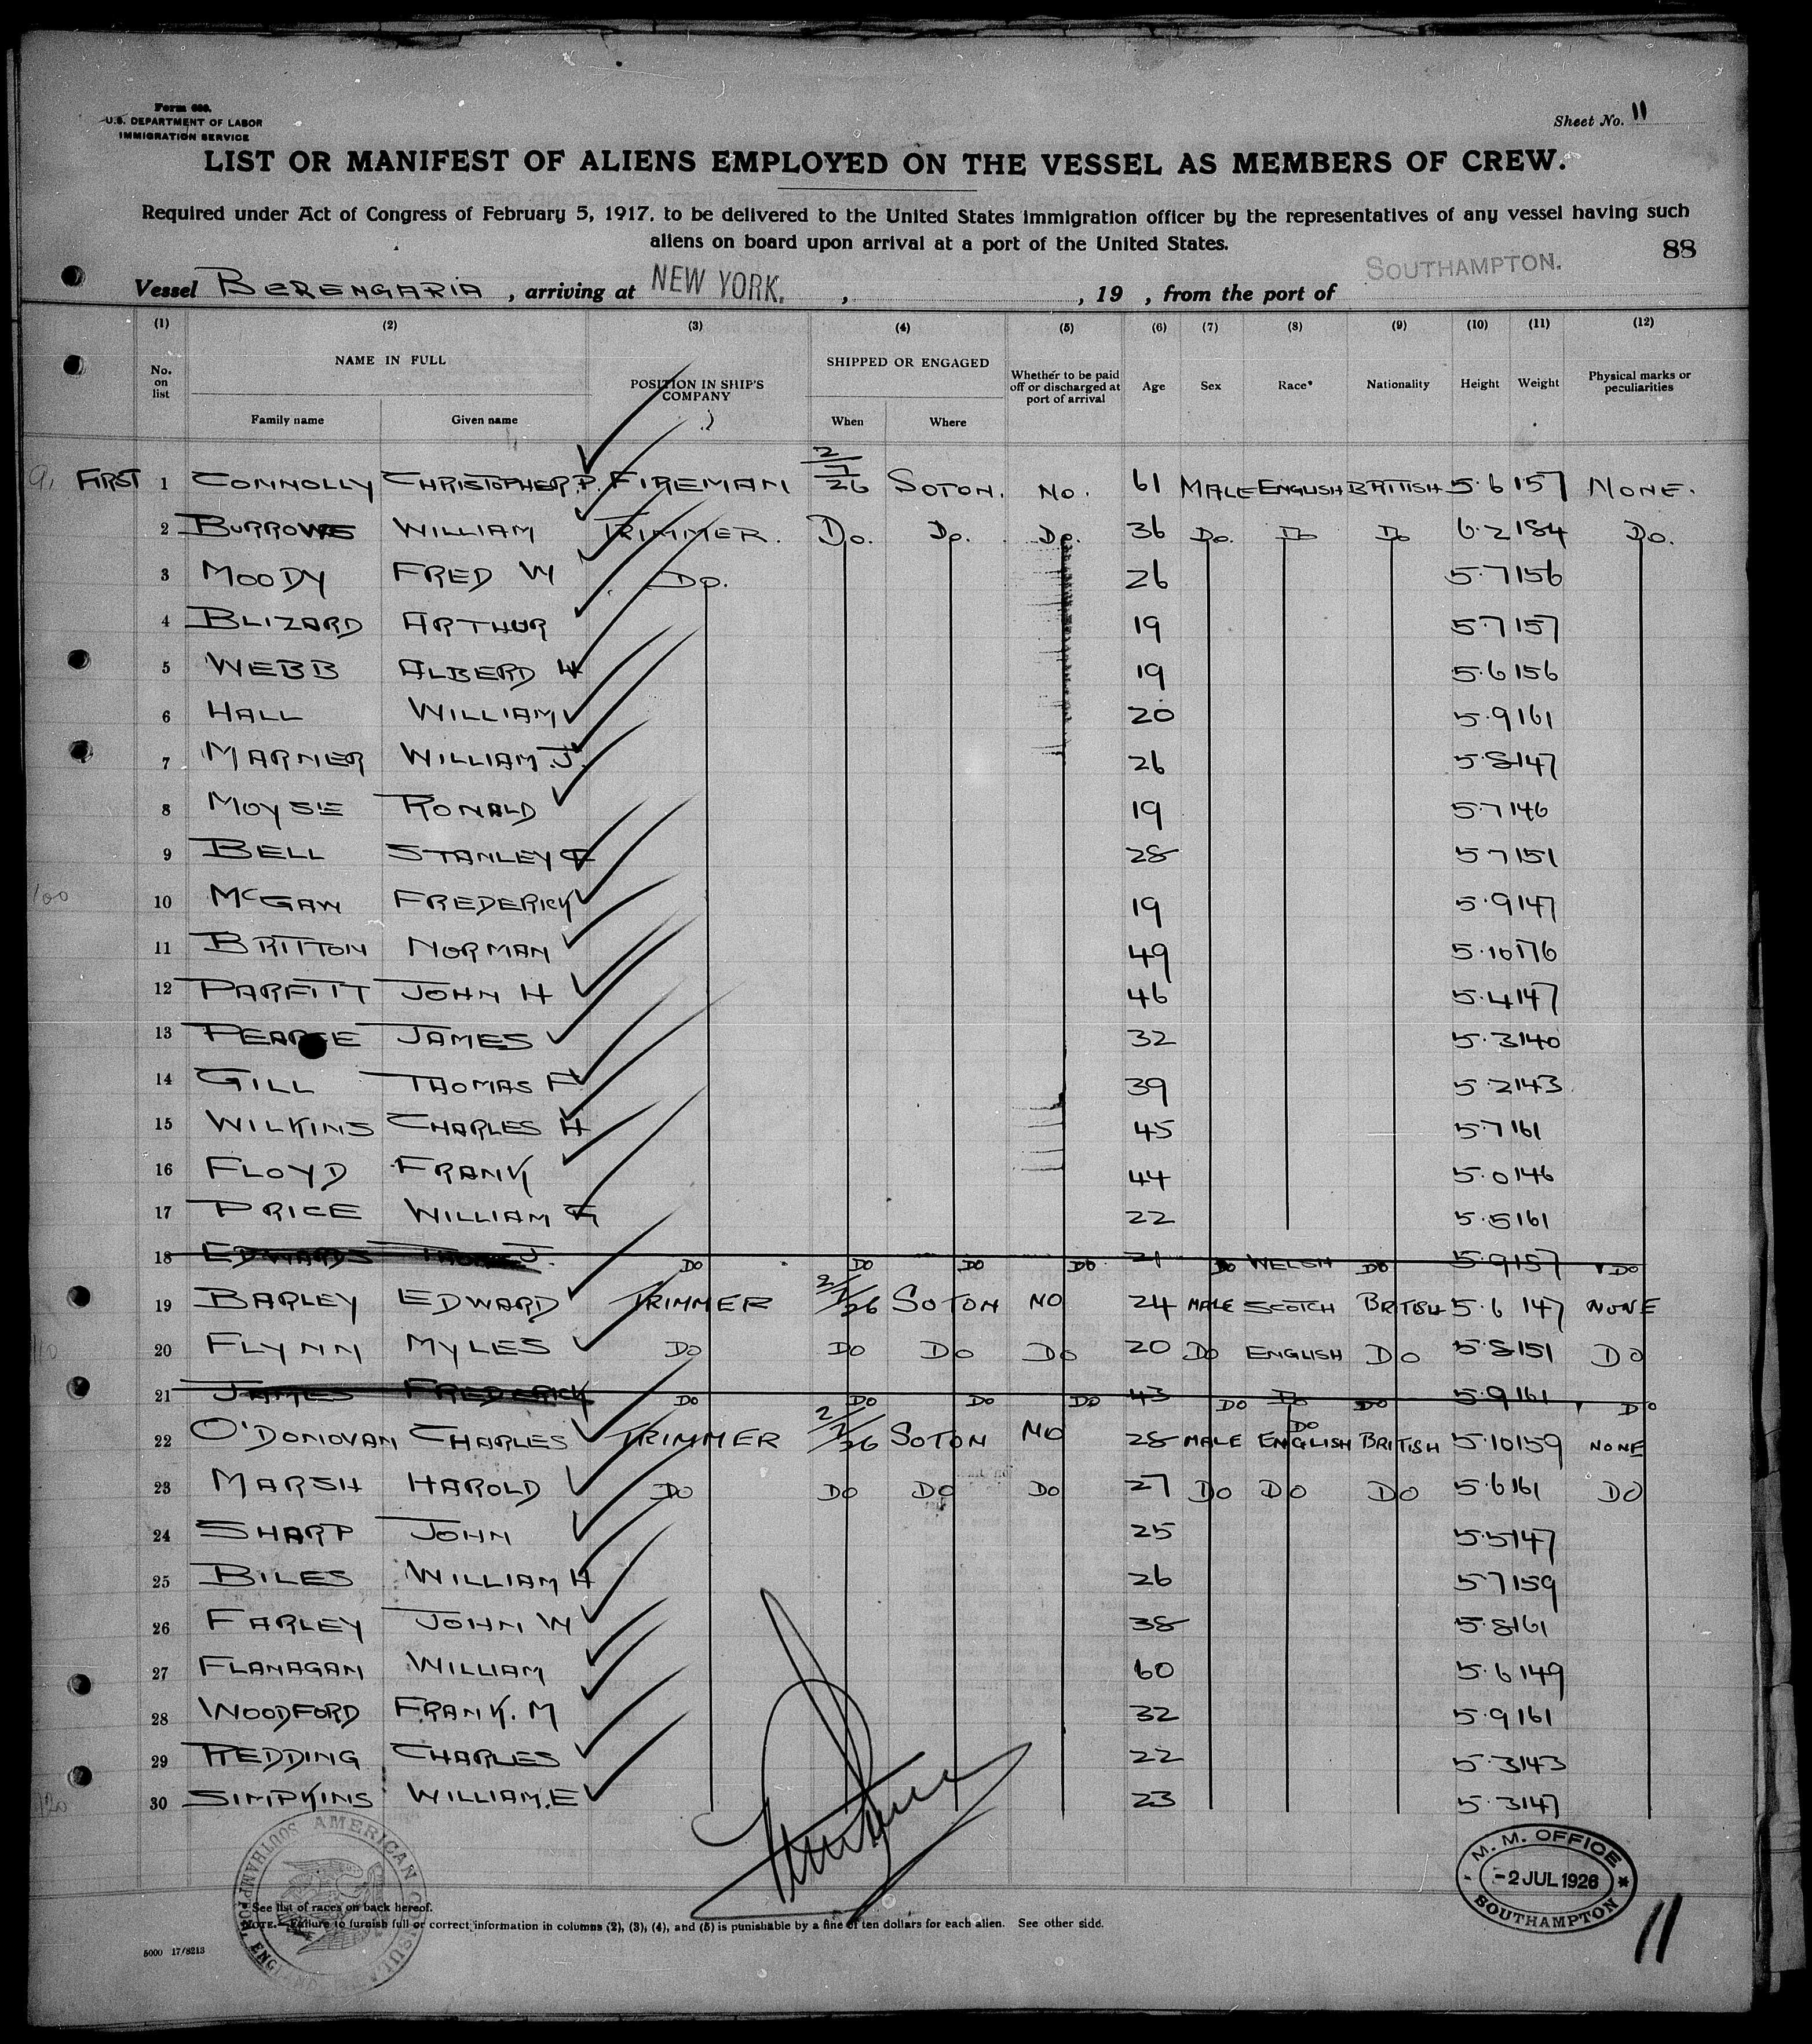 Form 689.
U.S. DEPARTMENT OF LABOR
IMMIGRATION SERVICE
Sheet No. 11
LIST OR MANIFEST OF ALIENS EMPLOYED ON THE VESSEL AS MEMBERS OF CREW.
Required under Act of Congress of February 5, 1917, to be delivered to the United States immigration officer by the representatives of any vessel having such
aliens on board upon arrival at a port of the United States.
88
Vessel BERENGARIA, arriving at NEW YORK, , 19 , from the port of SOUTHAMPTON.
(1) (2) (3) (4) (5) (6) (7) (8) (9) (10) (11) (12)
No. on list NAME IN FULL Family name Given name POSITION IN SHIP'S COMPANY SHIPPED OR ENGAGED When Where Whether to be paid off or discharged at port of arrival Age Sex Race* Nationality Height Weight Physical marks or peculiarities
FIRST 1 CONNOLLY CHRISTOPHER.P. FIREMAN 2/7/26 SOTON. NO. 61 MALE ENGLISH BRITISH 5.6 157 NONE.
2 BURROWS WILLIAM TRIMMER. DO. DO. DO. 36 DO. DO DO 6.2 184 DO.
3 MOODY FRED W DO. 26 5.7 156
4 BLIZARD ARTHUR 19 5.7 157
5 WEBB ALBERD H 19 5.6 156
6 HALL WILLIAM 20 5.9 161
7 MARNER WILLIAM.J. 26 5.8 147
8 MOYSE RONALD 19 5.7 146
9 BELL STANLEY G 28 5.7 151
100 10 McGAW FREDERICK 19 5.9 147
11 BRITTON NORMAN 49 5.10 176
12 PARFITT JOHN H 46 5.4 147
13 PEARCE JAMES 32 5.3 140
14 GILL THOMAS F 39 5.2 143
15 WILKINS CHARLES H 45 5.7 161
16 FLOYD FRANK 44 5.0 146
17 PRICE WILLIAM G 22 5.5 161
18 EDWARDS J. DO DO DO DO 21 DO WELSH DO 5.9 157 DO
19 BARLEY EDWARD TRIMMER 2/7/26 SOTON NO 24 MALE SCOTCH BRITISH 5.6 147 NONE
110 20 FLYNN MYLES DO DO DO DO 20 DO ENGLISH DO 5.8 151 DO
21 JAMES FREDERICK DO DO DO DO 43 DO DO DO 5.9 161 DO
22 O'DONOVAN CHARLES TRIMMER 2/7/26 SOTON NO 28 MALE DO ENGLISH BRITISH 5.10 159 NONE
23 MARSH HAROLD DO DO DO DO 27 DO DO DO 5.6 161 DO
24 SHARP JOHN 25 5.5 147
25 BILES WILLIAM H 26 5.7 159
26 FARLEY JOHN W 38 5.8 161
27 FLANAGAN WILLIAM 60 5.6 149
28 WOODFORD FRANK. M 32 5.9 161
29 REDDING CHARLES 22 5.3 143
120 30 SIMPKINS WILLIAM.E 23 5.3 147
AMERICAN CONSULATE SOUTHAMPTON, ENGLAND
M. M. OFFICE
-2 JUL 1926
SOUTHAMPTON
* See list of races on back hereof.
NOTE.—Failure to furnish full or correct information in columns (2), (3), (4), and (5) is punishable by a fine of ten dollars for each alien. See other side.
5000 17/8213
11